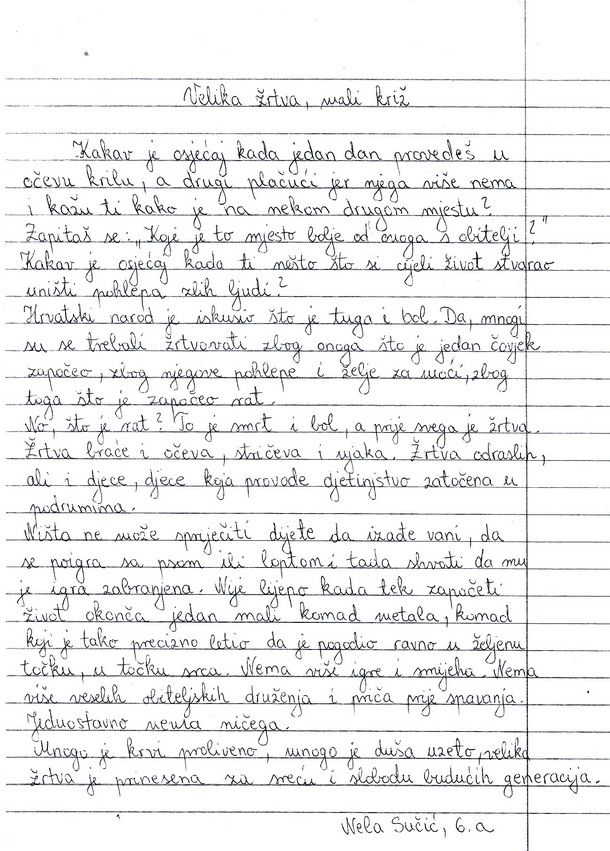 Velika žrtva, mali križ
Kakav je osjećaj kada jedan dan provedeš u
očevu krilu, a drugi plačući jer njega više nema
i kažu ti kako je na nekom drugom mjestu?
Zapitaš se: „Koje je to mjesto bolje od onoga s obitelji?"
Kakav je osjećaj kada ti nešto što si cijeli život stvarao
uništi pohlepa zlih ljudi?
Hrvatski narod je iskusio što je tuga i bol. Da, mnogi
su se trebali žrtvovati zbog onoga što je jedan čovjek
započeo, zbog njegove pohlepe i želje za moći, zbog
toga što je započeo rat.
No, što je rat? To je smrt i bol, a prije svega je žrtva.
Žrtva braće i očeva, stričeva i ujaka. Žrtva odraslih,
ali i djece, djece koja provode djetinjstvo zatočena u
podrumima.
Ništa ne može spriječiti dijete da izađe vani, da
se poigra sa psom ili loptom i tada shvati da mu
je igra zabranjena. Nije lijepo kada tek započeti
život okonča jedan mali komad metala, komad
koji je tako precizno letio da je pogodio ravno u željenu
točku, u točku srca. Nema više igre i smijeha. Nema
više veselih obiteljskih druženja i priča prije spavanja.
Jednostavno nema ničega.
Mnogo je krvi proliveno, mnogo je duša uzeto, velika
žrtva je prinesena za sreću i slobodu budućih generacija.
Nela Sučić, 6.a